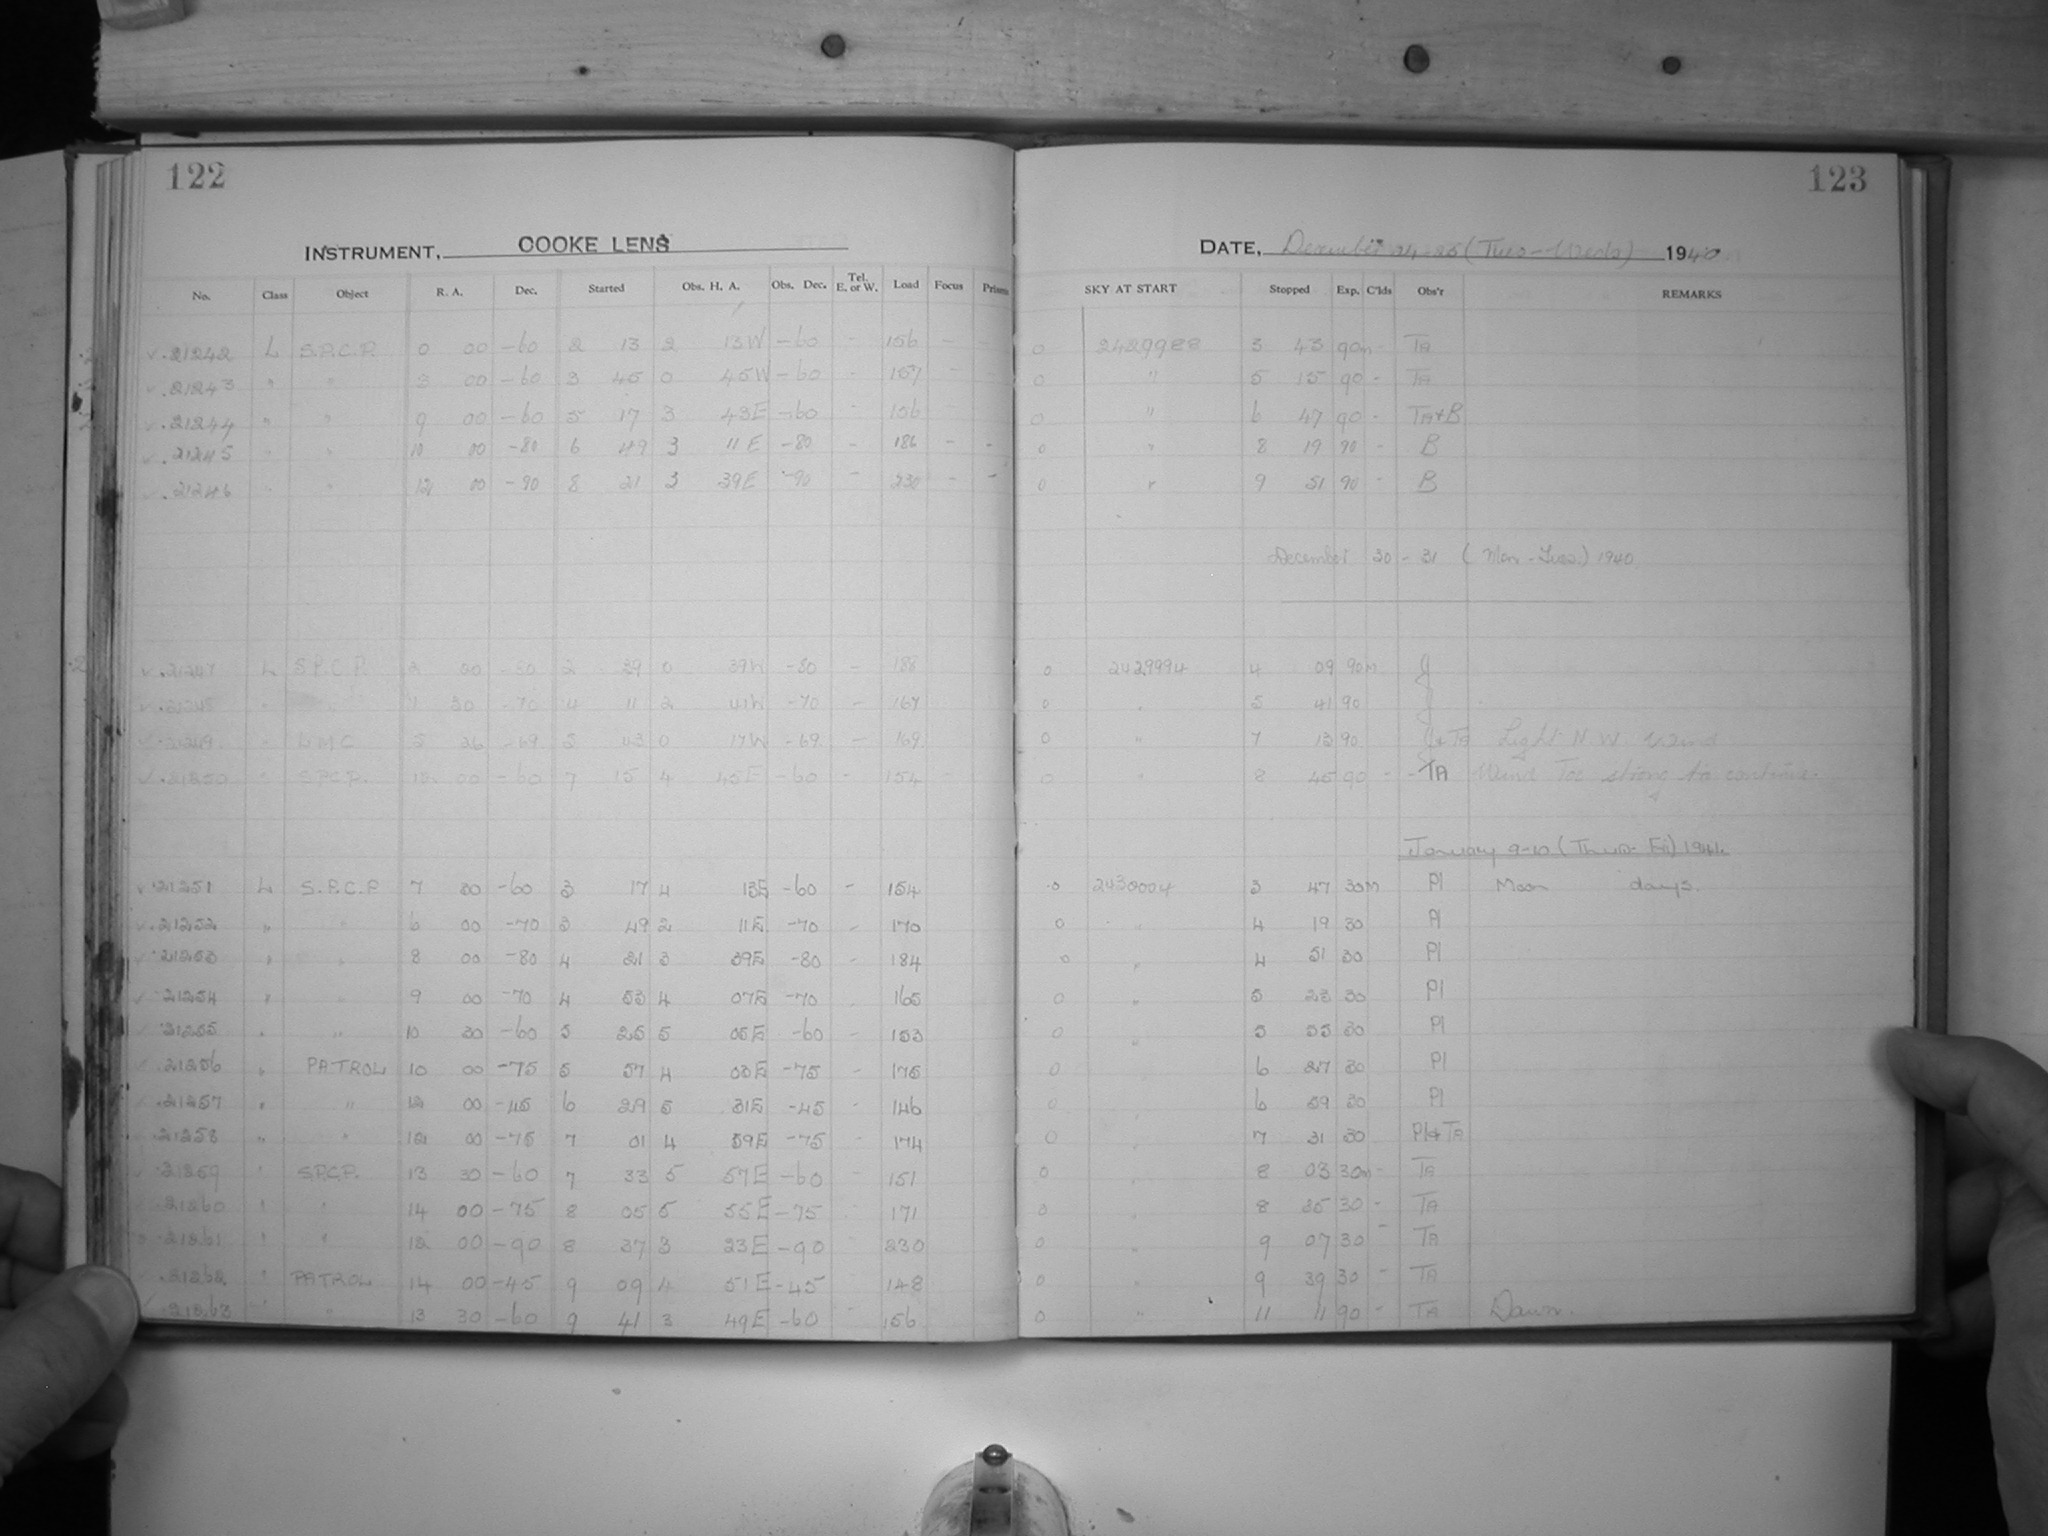 122
123
INSTRUMENT, COOKE LENS
DATE, December 24-25 (Tues-Weds) 1940
No. Class Object R. A. Dec. Started Obs. H. A. Obs. Dec. Tel. E. or W. Load Focus Prism SKY AT START Stopped Exp. C'lds Obs'r REMARKS
21242 L S.P.C.P. 0 00 -60 2 13 2 13W -60 - 156 - - 0 2429988 3 43 90m - TA
21243 " " 3 00 -60 3 45 0 45W -60 - 157 - 0 " 5 15 90 - TA
21244 " " 9 00 -60 5 17 3 43E -60 - 156 - 0 " 6 47 90 - TA+B
21245 " " 10 00 -80 6 49 3 11E -80 - 186 - - 0 " 8 19 90 - B
21246 " " 12 00 -90 8 21 3 39E -90 - 230 - - 0 " 9 51 90 - B
December 30-31 (Mon-Tues.) 1940
21247 L S.P.C.P. 2 00 -80 2 39 0 39W -80 - 188 0 2429994 4 09 90m J
21248 " " 1 30 -70 4 11 2 41W -70 - 167 0 " 5 41 90 J
21249 " L.M.C. 5 26 -69 5 43 0 17W -69 - 169 0 " 7 13 90 J+TA Light N.W. wind
21250 " S.P.C.P. 12 00 -60 7 15 4 45E -60 - 154 0 " 8 45 90 - TA Wind Too strong to continue.
January 9-10 (Thurs-Fri) 1941
21251 L S.P.C.P 7 30 -60 3 17 4 13E -60 - 154 0 2430004 3 47 30m Pl Moon days.
21252 " " 6 00 -70 3 49 2 11E -70 - 170 0 " 4 19 30 Pl
21253 " " 8 00 -80 4 21 3 39E -80 - 184 0 " 4 51 30 Pl
21254 " " 9 00 -70 4 53 4 07E -70 165 0 " 5 23 30 Pl
21255 " " 10 30 -60 5 25 5 05E -60 - 153 0 " 5 55 30 Pl
21256 " PATROL 10 00 -75 5 57 4 03E -75 - 175 0 6 27 30 Pl
21257 " " 12 00 -45 6 29 5 31E -45 - 146 0 " 6 59 30 Pl
21258 " " 12 00 -75 7 01 4 59E -75 - 174 0 7 31 30 Pl+TA
21259 " S.P.C.P. 13 30 -60 7 33 5 57E -60 151 0 " 8 03 30m - TA
21260 " " 14 00 -75 8 05 5 55E -75 171 0 " 8 35 30 - TA
21261 " " 12 00 -90 8 37 3 23E -90 230 0 " 9 07 30 - TA
21262 " PATROL 14 00 -45 9 09 4 51E -45 148 0 " 9 39 30 - TA
21263 " " 13 30 -60 9 41 3 49E -60 156 0 " 11 11 90 - TA Dawn.